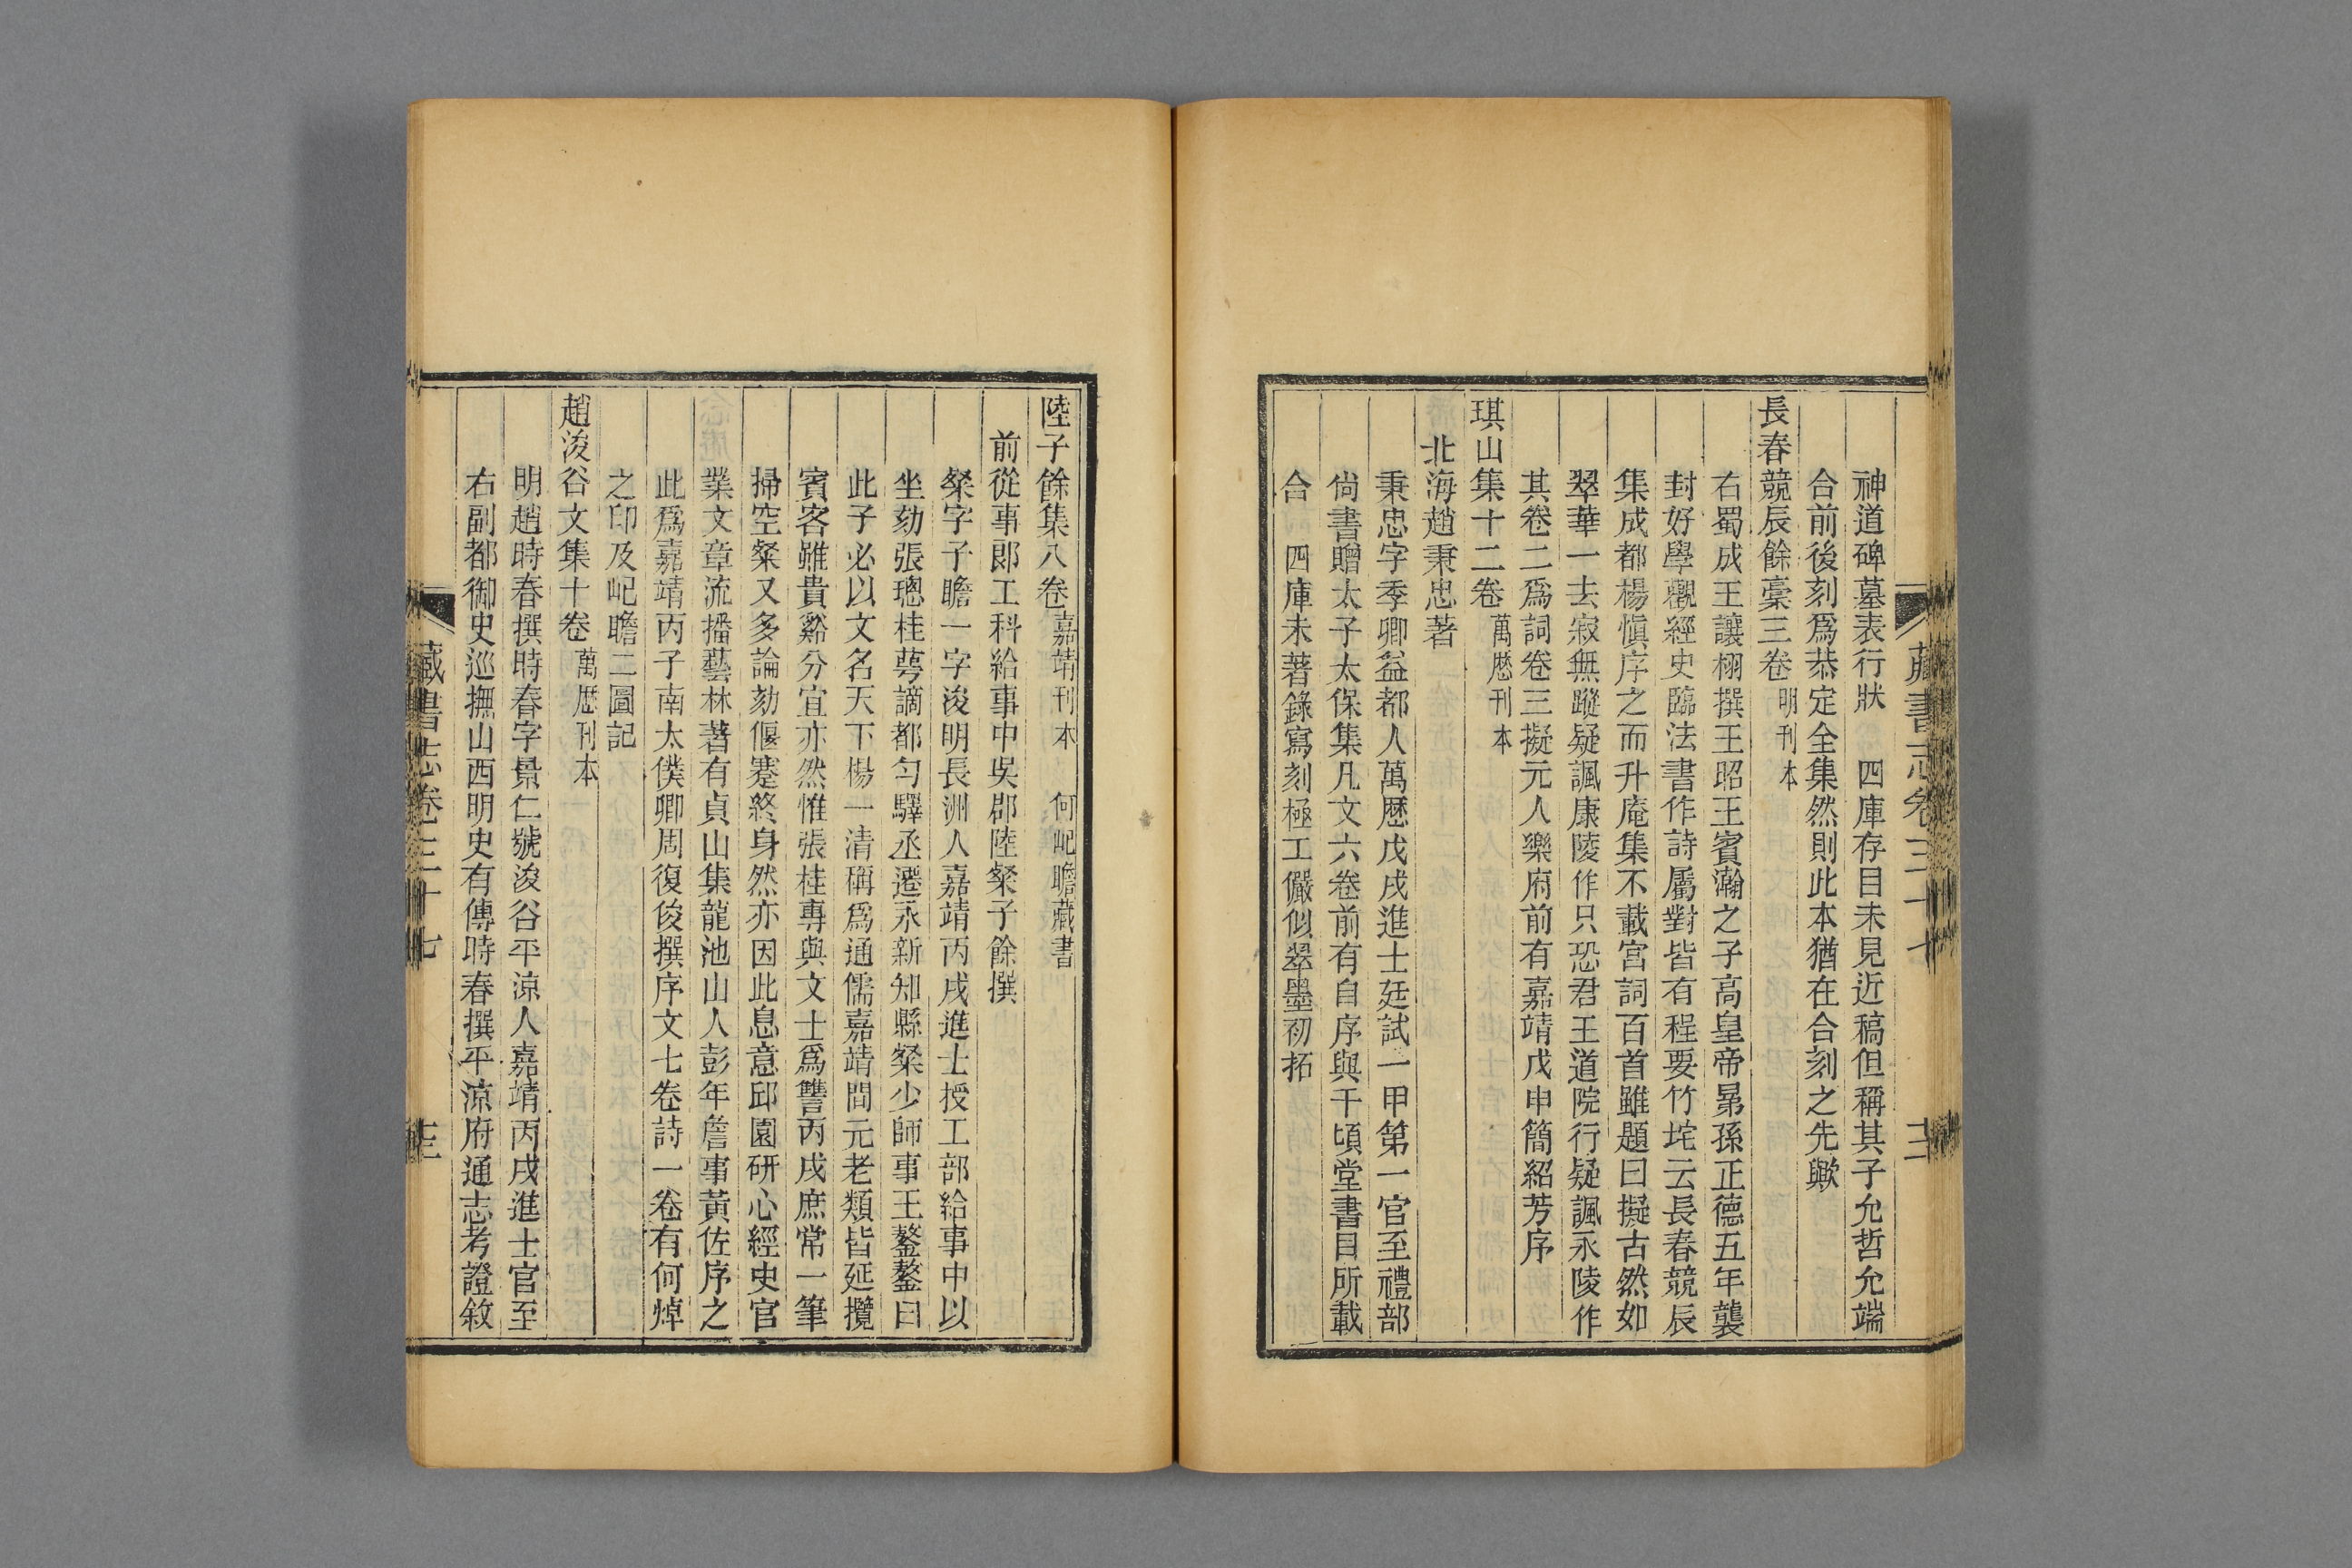 神道碑墓表行狀　四庫存目未見近稿但稱其子允哲允端
合前後刻爲恭定全集然則此本猶在合刻之先歟
長春競辰餘稾三卷　明刊本
右蜀成王讓栩撰王昭王賓瀚之子高皇帝晜孫正德五年襲
封好學觀經史臨法書作詩屬對皆有程要竹垞云長春競辰
集成都楊愼序之而升庵集不載宮詞百首雖題曰擬古然如
翠華一去寂無蹤疑諷康陵作只恐君王道院行疑諷永陵作
其卷二爲詞卷三擬元人樂府前有嘉靖戊申簡紹芳序
琪山集十二卷　萬厯刊本
北海趙秉忠著
秉忠字季卿益都人萬厯戊戌進士廷試一甲第一官至禮部
尙書贈太子太保集凡文六卷前有自序與千頃堂書目所載
合　四庫未著錄寫刻極工儼似翠墨初拓
藏書志卷三十七　十二
陸子餘集八卷　嘉靖刊本　何屺瞻藏書
前從事郞工科給事中吳郡陸粲子餘撰
粲字子瞻一字浚明長洲人嘉靖丙戌進士授工部給事中以
坐劾張璁桂萼謫都勻驛丞遷永新知縣粲少師事王鏊鏊曰
此子必以文名天下楊一清稱爲通儒嘉靖間元老類皆延攬
賓客雖貴谿分宜亦然惟張桂專與文士爲讐丙戌庶常一筆
掃空粲又多論劾偃蹇終身然亦因此息意邱園硏心經史官
業文章流播藝林著有貞山集龍池山人彭年詹事黃佐序之
此爲嘉靖丙子南太僕卿周復俊撰序文七卷詩一卷有何焯
之印及屺瞻二圖記
趙浚谷文集十卷　萬厯刊本
明趙時春撰時春字景仁號浚谷平涼人嘉靖丙戌進士官至
右副都御史巡撫山西明史有傳時春撰平涼府通志考證敘
藏書志卷三十七　十三